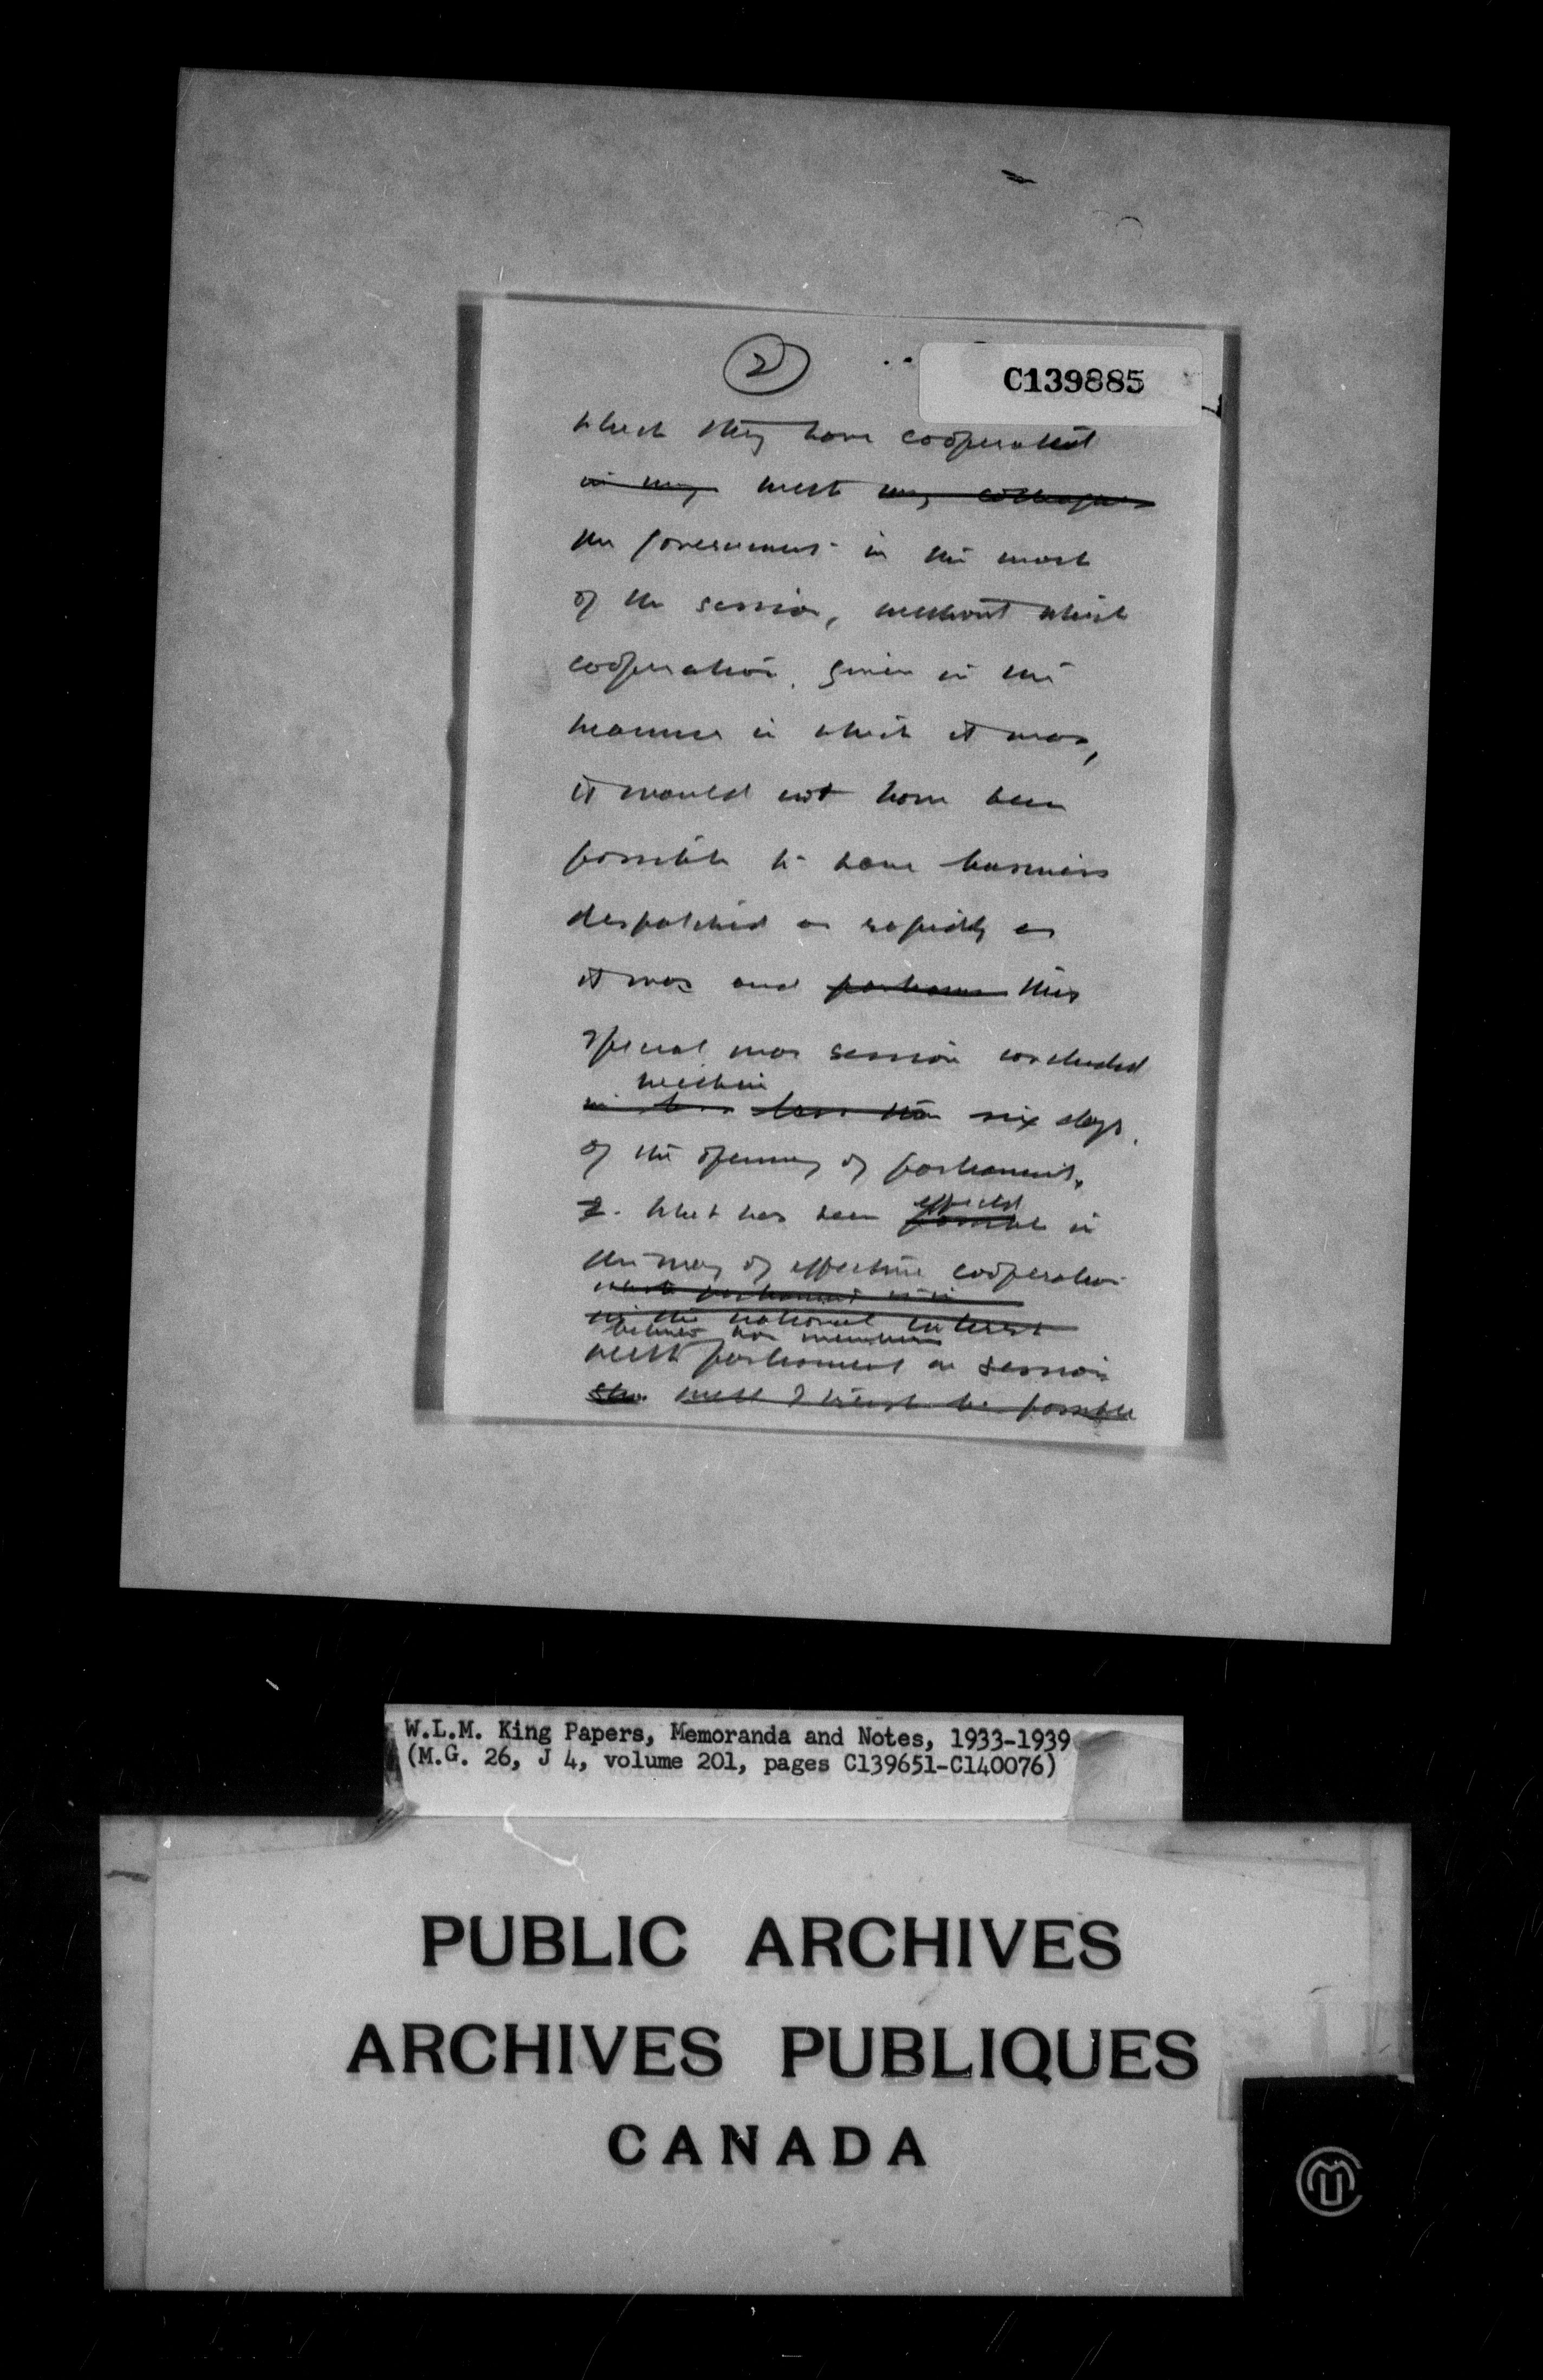 2
C139885
which they have cooperated
in my with my colleagues
the government in the work
of the session, without which
cooperation, given in the
manner in which it was,
it would not have been
possible to have business
despatched as rapidly as
it was and this
special war session concluded
within
in less less than six days.
of the opening of parliament.
effected
I. What has been possible in
the way of effective cooperation
parliament is in
in the national interest
between members
with parliament in session
will I trust be possible
W.L.M. King Papers, Memoranda and Notes, 1933-1939
(M.G. 26, J 4, volume 201, pages C139651-C140076)
PUBLIC ARCHIVES
ARCHIVES PUBLIQUES
CANADA